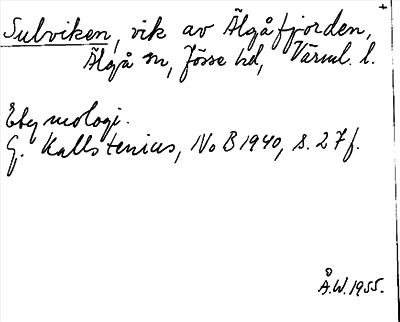 Sulviken, vik av Älgåfjorden,
Älgå sn, Jösse hd, Värml. l.
Etymologi.
G. Kallstenius, NoB 1940, s. 27 f.
Å.W. 1955.